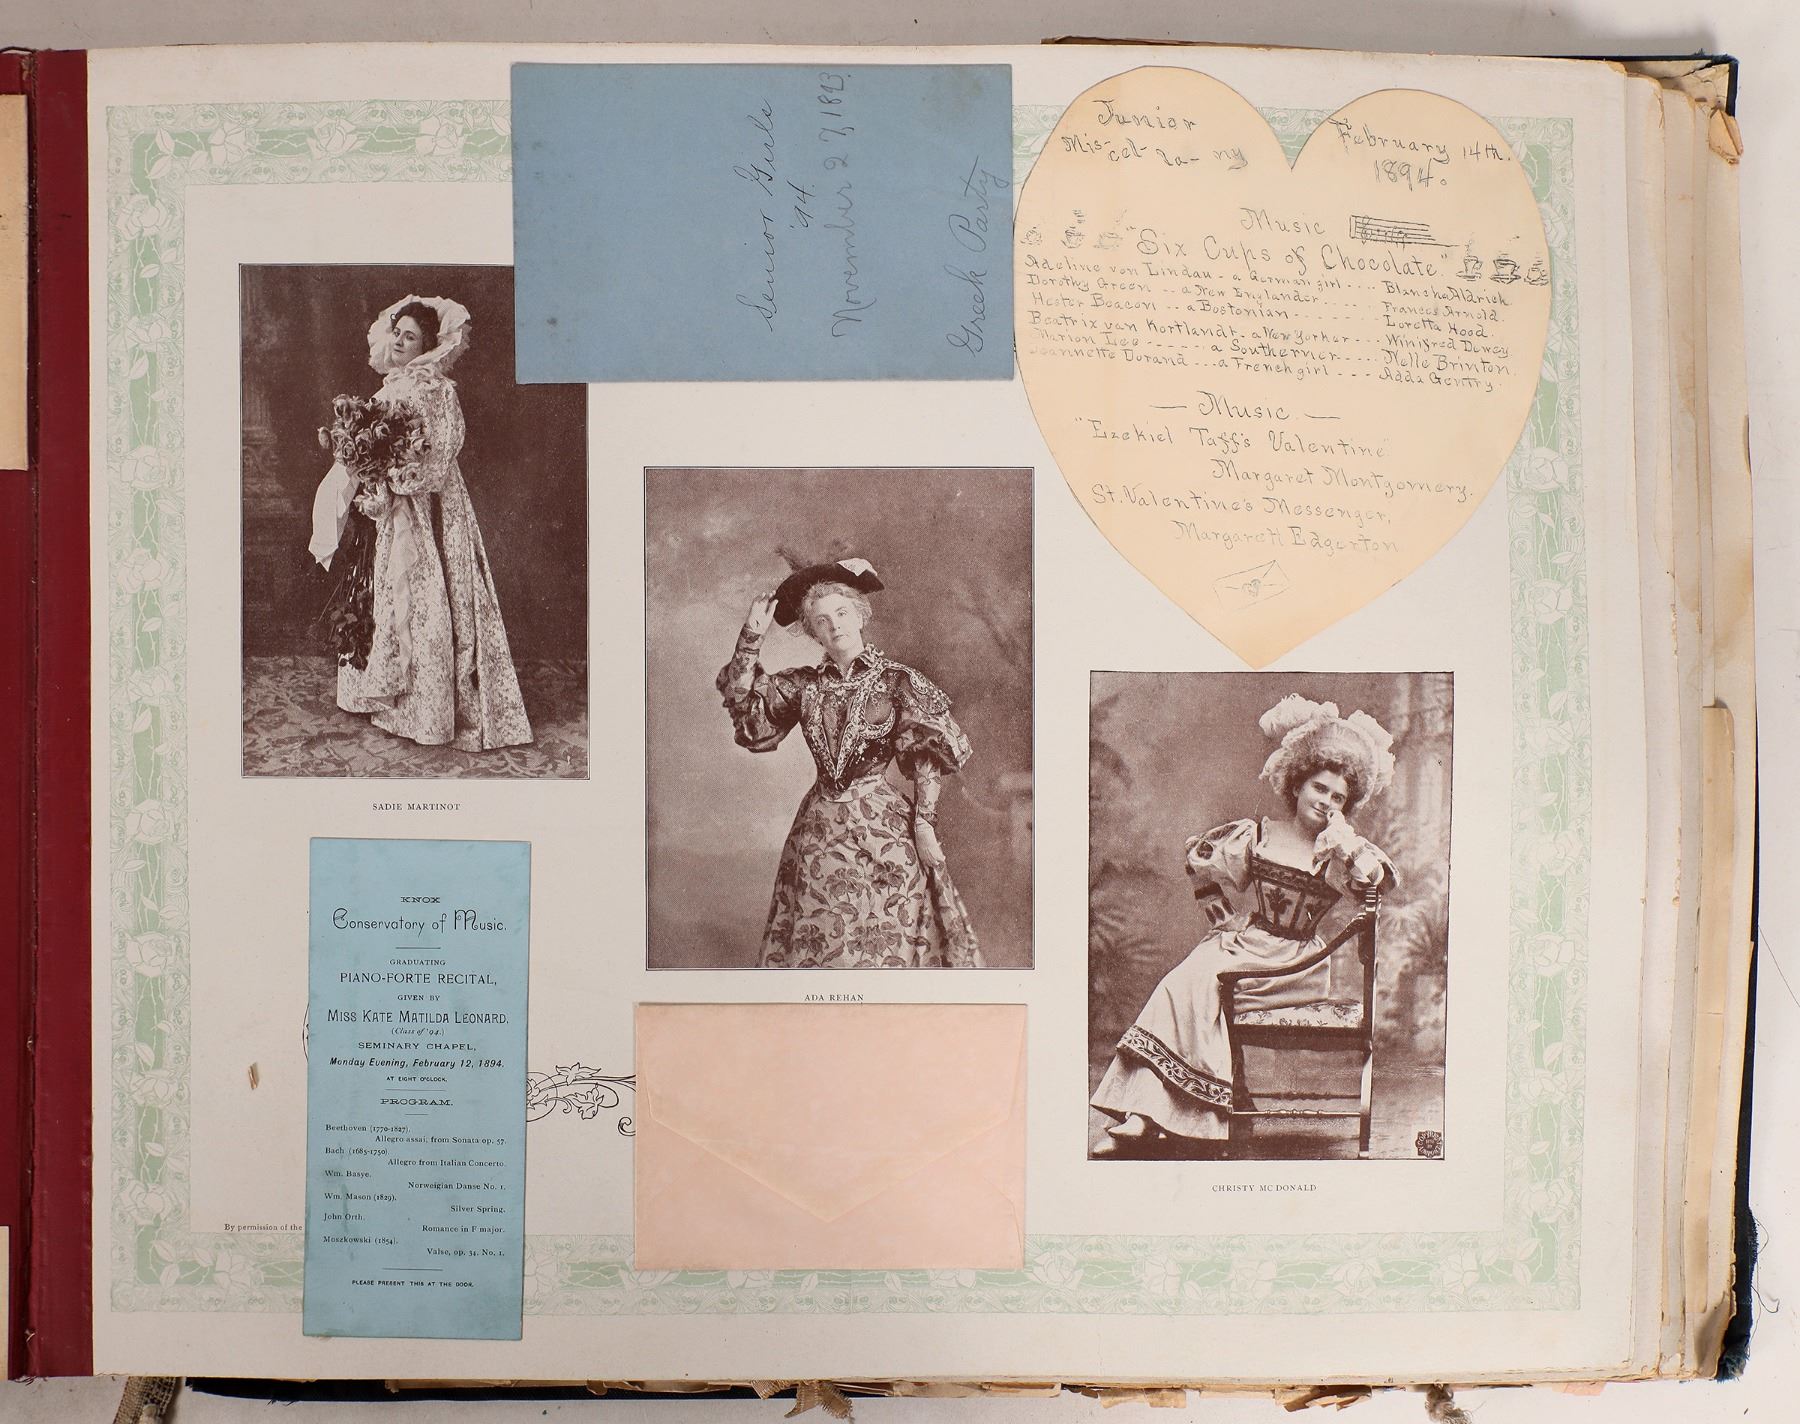 Senior Girls
'94.
November 27, 1893.
Greek Party
Junior
Mis-cel-la-ny
February 14th.
1894.
Music
"Six Cups of Chocolate."
Adeline von Lindau - a German girl .... Blanche Aldrich
Dorothy Green .. a New Englander ..... Frances Arnold.
Hester Beacon .. a Bostonian ........ Loretta Hood.
Beatrix van Kortlandt - a New Yorker ... Winifred Dewey
Marion Lee ------ a Southerner ..... Nelle Brinton.
Jeannette Durand ... a French girl --- Adda Gentry.
— Music. —
"Ezekiel Taff's Valentine"
Margaret Montgomery.
St. Valentine's Messenger,
Margarett Edgerton
SADIE MARTINOT
ADA REHAN
CHRISTY MC DONALD
KNOX
Conservatory of Music.
GRADUATING
PIANO-FORTE RECITAL,
GIVEN BY
MISS KATE MATILDA LEONARD,
(Class of '94.)
SEMINARY CHAPEL,
Monday Evening, February 12, 1894.
AT EIGHT O'CLOCK.
PROGRAM.
Beethoven (1770-1827).
Allegro assai, from Sonata op. 57.
Bach (1685-1750).
Allegro from Italian Concerto.
Wm. Basye.
Norweigian Danse No. 1.
Wm. Mason (1829).
Silver Spring.
John Orth.
Romance in F major.
Moszkowski (1854).
Valse, op. 34. No. 1.
PLEASE PRESENT THIS AT THE DOOR.
By permission of the